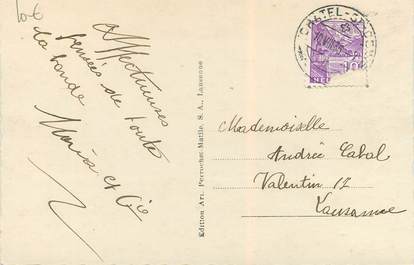 10€
Affectueuses
pensées de toute
la bande
Maria et Cie
Edition Art. Perrochet-Matile, S. A., Lausanne
CHATEL-ST-DENIS
10
Mademoiselle
Andrée Cabal
Valentin 12
Lausanne